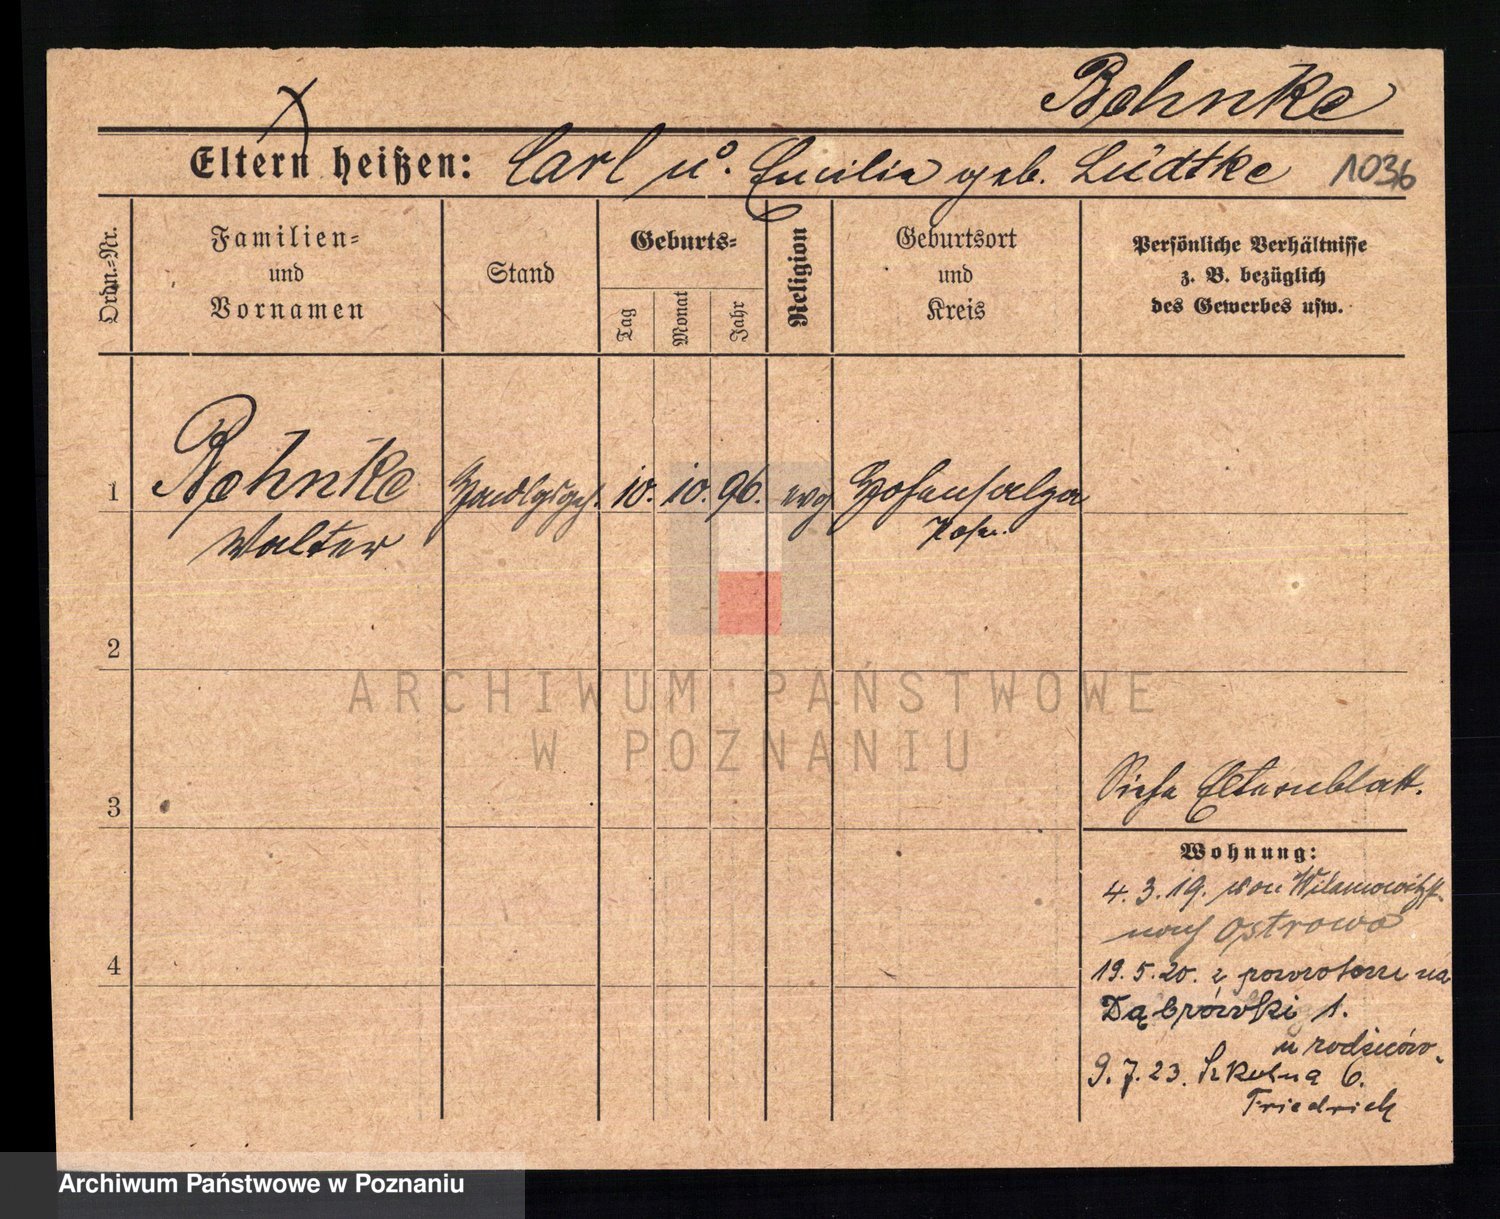 Behnke
Eltern heißen: Carl u. Emilie geb. Lüdtke 1036
Ordn.-Nr.
Familien-
und
Vornamen
Stand
Geburts-
Tag
Monat
Jahr
Religion
Geburtsort
und
Kreis
Persönliche Verhältnisse
z. B. bezüglich
des Gewerbes usw.
1 Behnke Handlgsgeh. 10. 10. 96. evg Hohensalza
Walter Posen.
2
ARCHIWUM PAŃSTWOWE
W POZNANIU
Siehe Elternblatt.
3
Wohnung:
4. 3. 19. von
nach Ostrowo
4
19. 5. 20. z powrotem na
Dąbrówski 1.
u rodziców.
9. 7. 23. Szkolna 6.
Friedrich
Archiwum Państwowe w Poznaniu